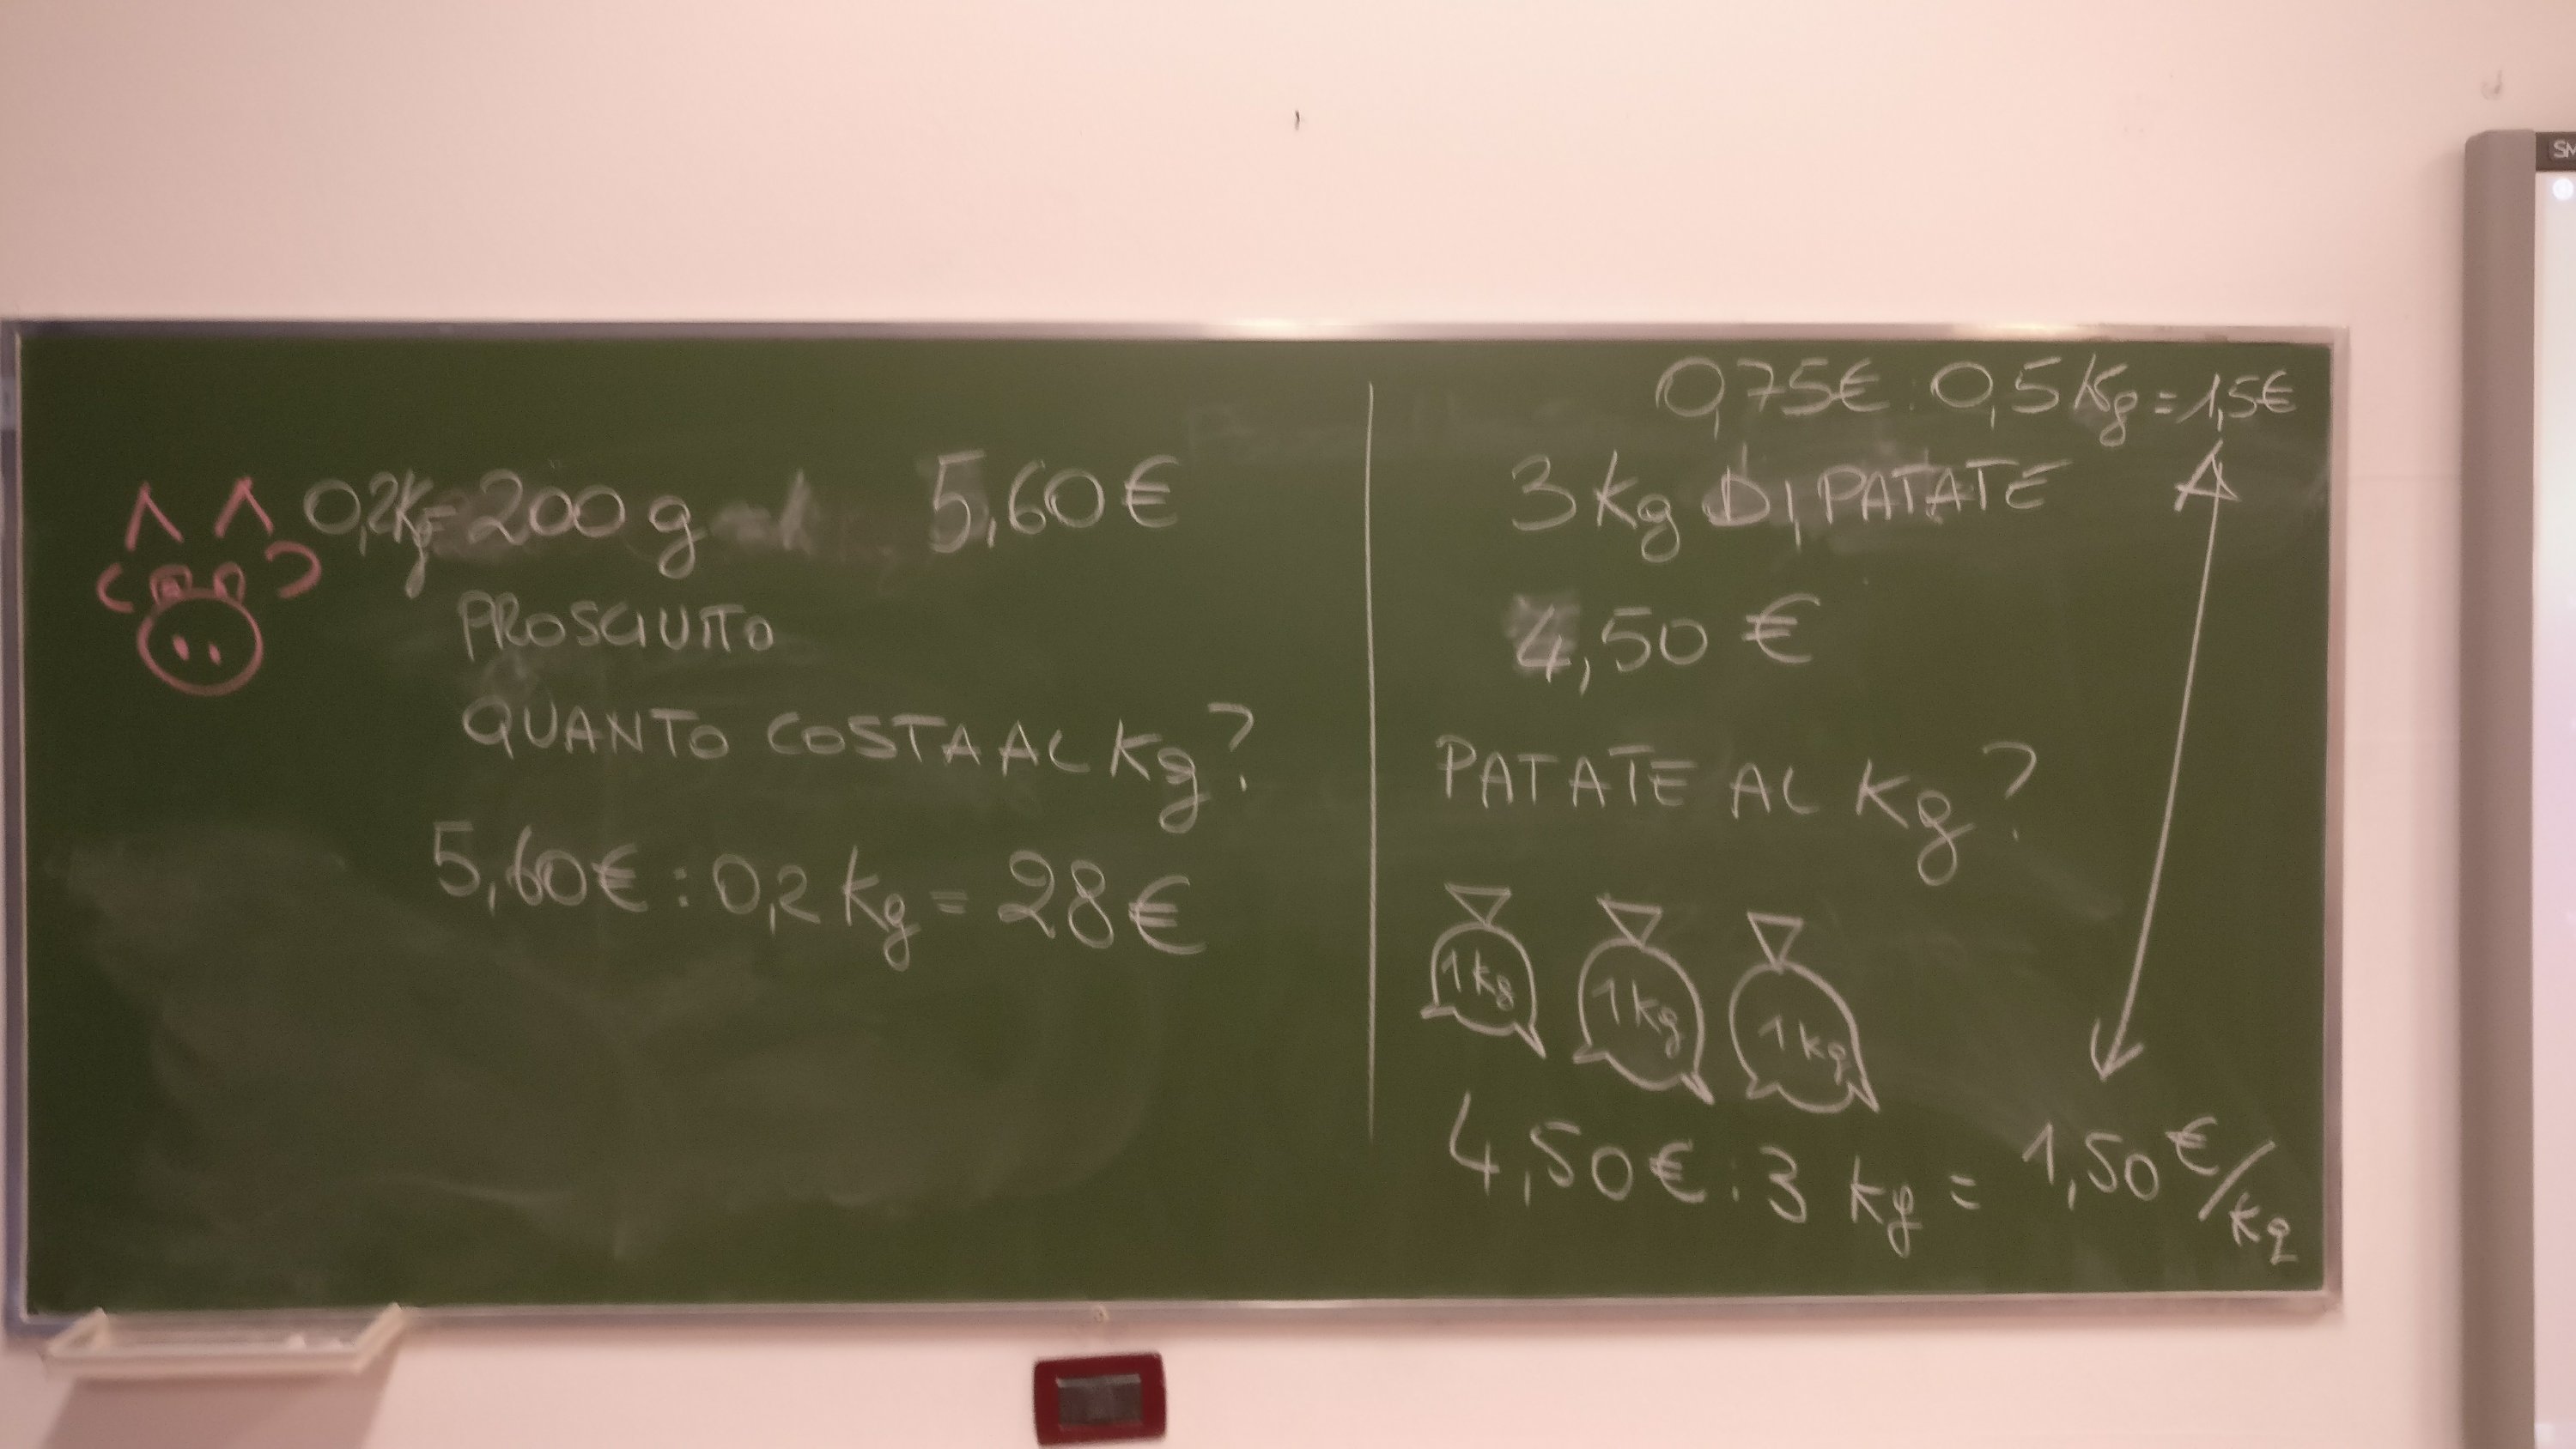 0,2Kg=200 g 5,60 €
PROSCIUTTO
QUANTO COSTA AL Kg?
5,60€ : 0,2 Kg = 28 €
0,75€ : 0,5 Kg = 1,5€
3 Kg DI PATATE
4,50 €
PATATE AL Kg?
1 Kg 1 Kg 1 Kg
4,50 € : 3 Kg = 1,50 €/Kg
SM